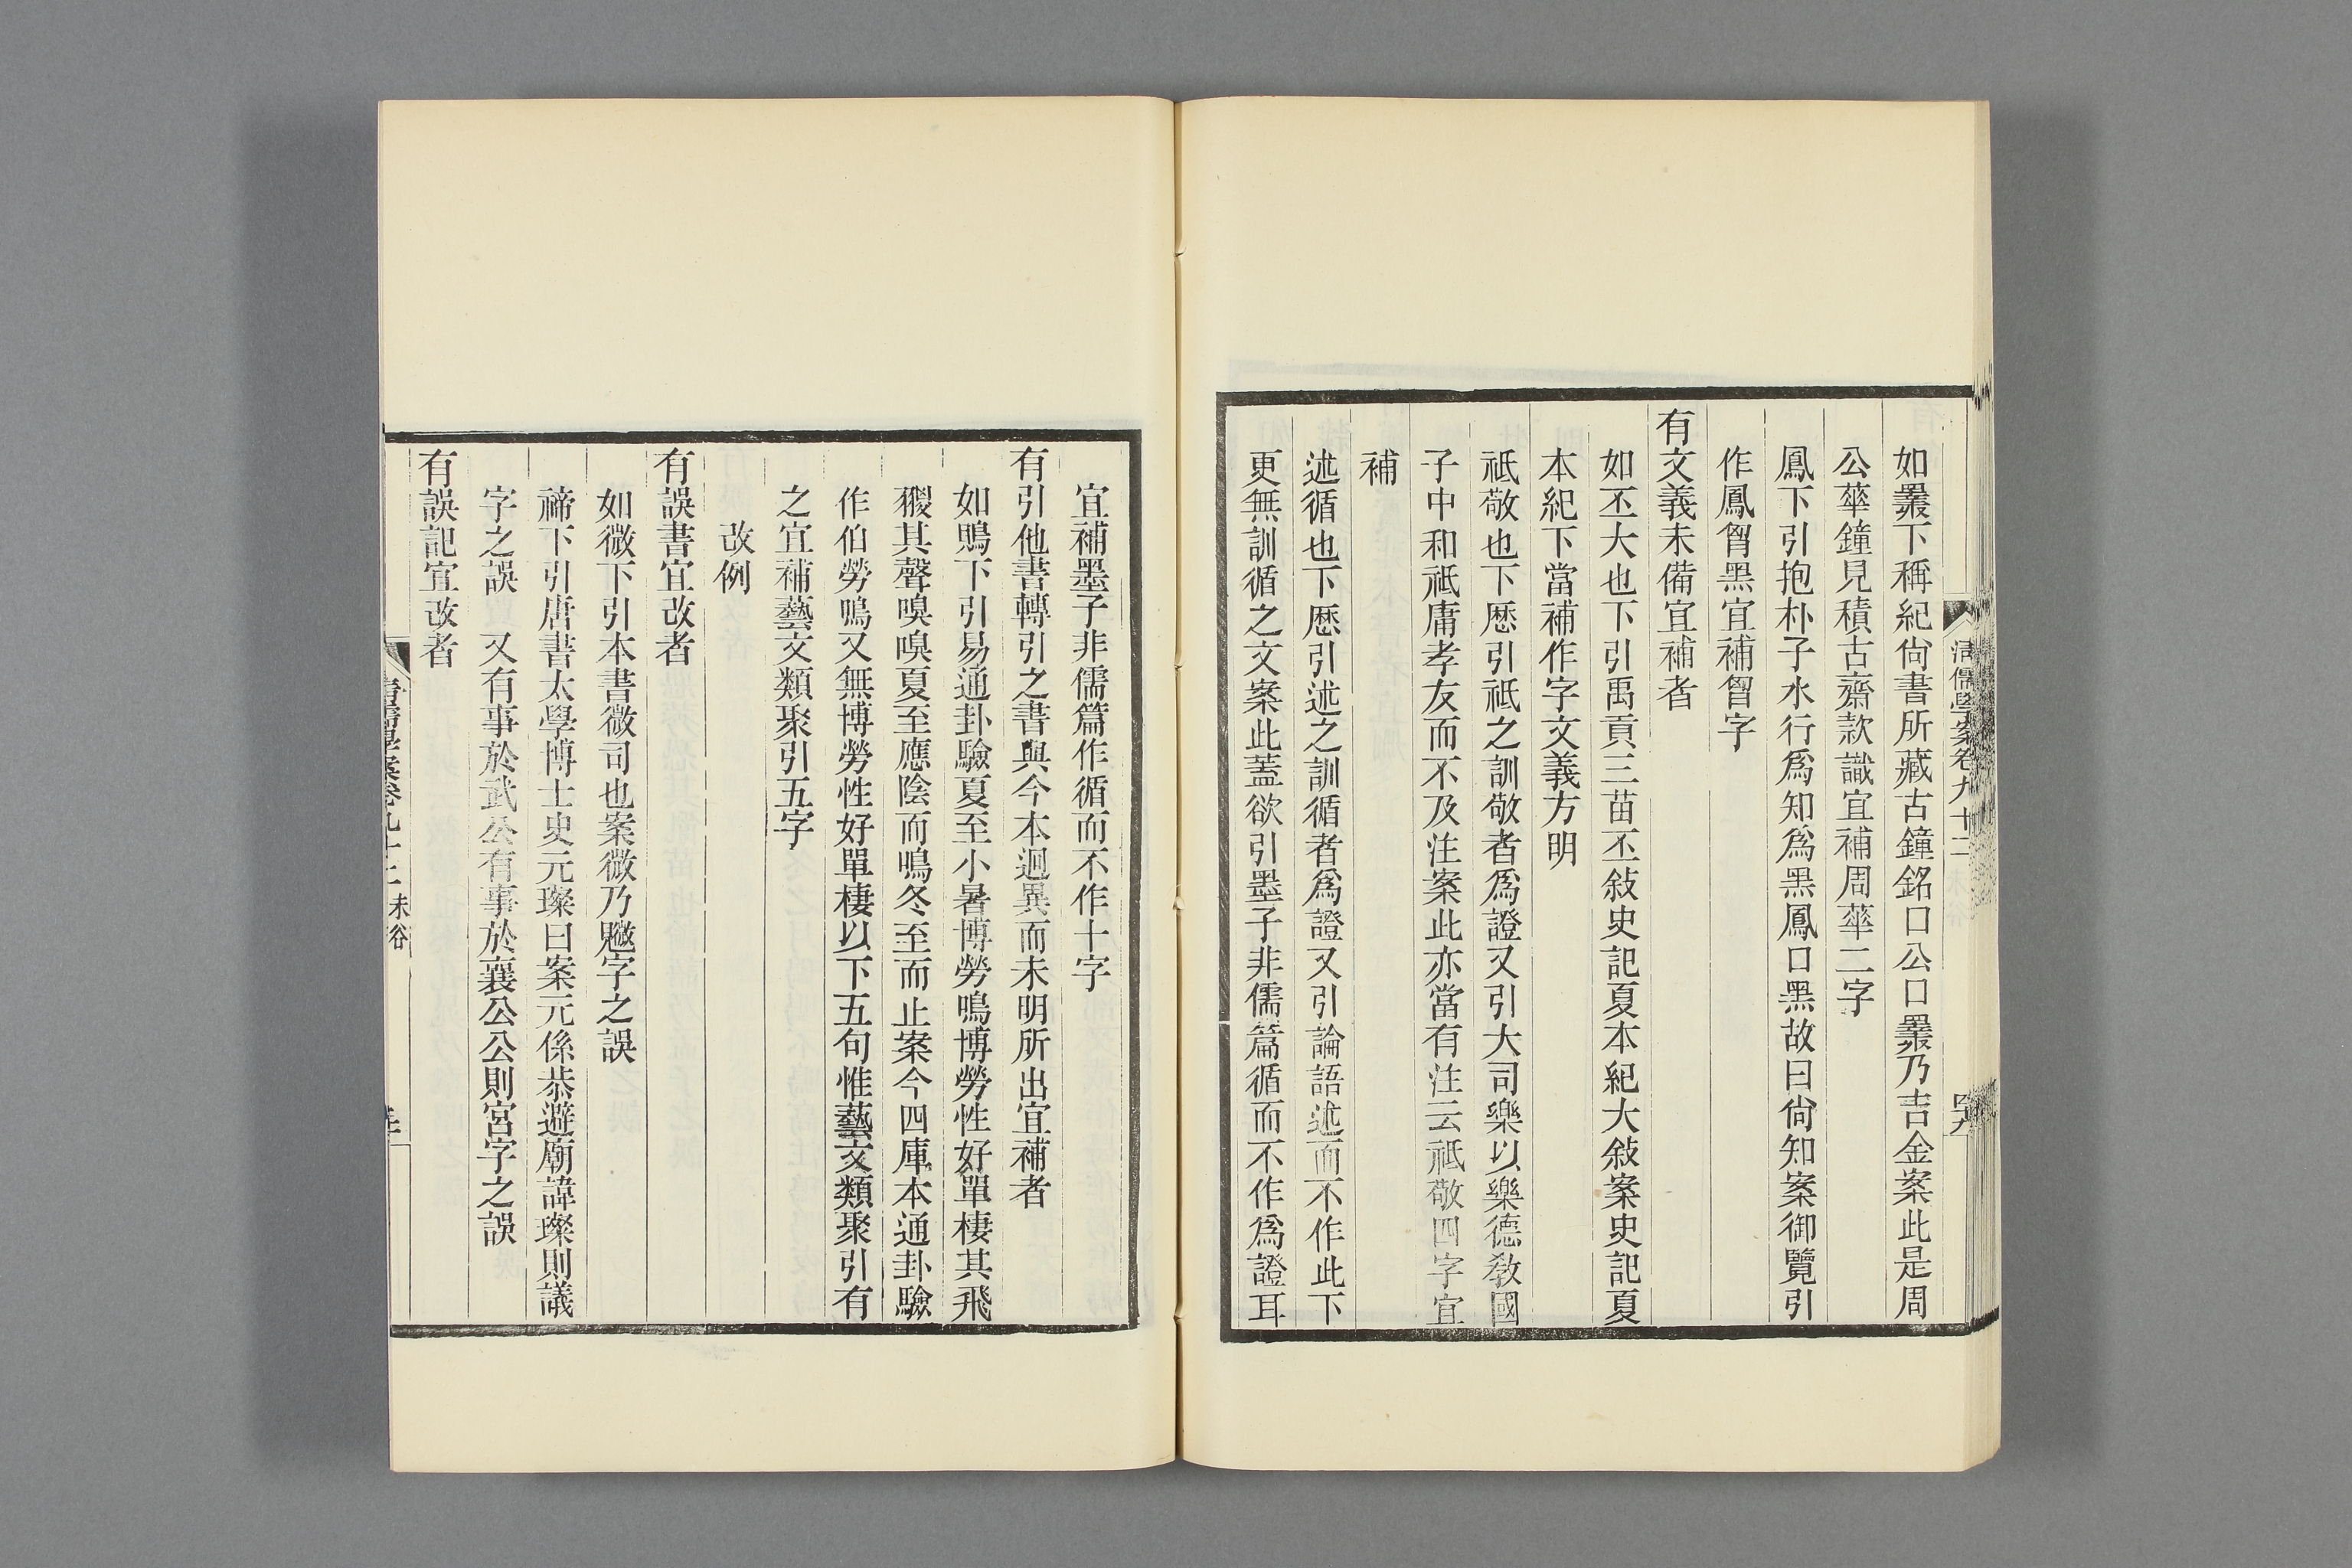 如䥯下稱紀尙書所藏古鐘銘口公口䥯乃吉金案此是周
公華鐘見積古齋款識宜補周華二字
鳳下引抱朴子水行爲知爲黑鳳口黑故曰尙知案御覽引
作鳳胷黑宜補胷字
有文義未備宜補者
如丕大也下引禹貢三苗丕敍史記夏本紀大敍案史記夏
本紀下當補作字文義方明
祗敬也下歴引祗之訓敬者爲證又引大司樂以樂德敎國
子中和祗庸孝友而不及注案此亦當有注云祗敬四字宜
補
述循也下歴引述之訓循者爲證又引論語述而不作此下
更無訓循之文案此蓋欲引墨子非儒篇循而不作爲證耳
清儒學案卷九十二
宜補墨子非儒篇作循而不作十字
有引他書轉引之書與今本迥異而未明所出宜補者
如鵙下引易通卦驗夏至小暑博勞鳴博勞性好單棲其飛
翪其聲嗅嗅夏至應陰而鳴冬至而止案今四庫本通卦驗
作伯勞鳴又無博勞性好單棲以下五句惟藝文類聚引有
之宜補藝文類聚引五字
改例
有誤書宜改者
如微下引本書微司也案微乃覹字之誤
禘下引唐書太學博士史元璨曰案元係恭避廟諱璨則議
字之誤　又有事於武公有事於襄公公則宮字之誤
有誤記宜改者
清儒學案卷九十二　未谷